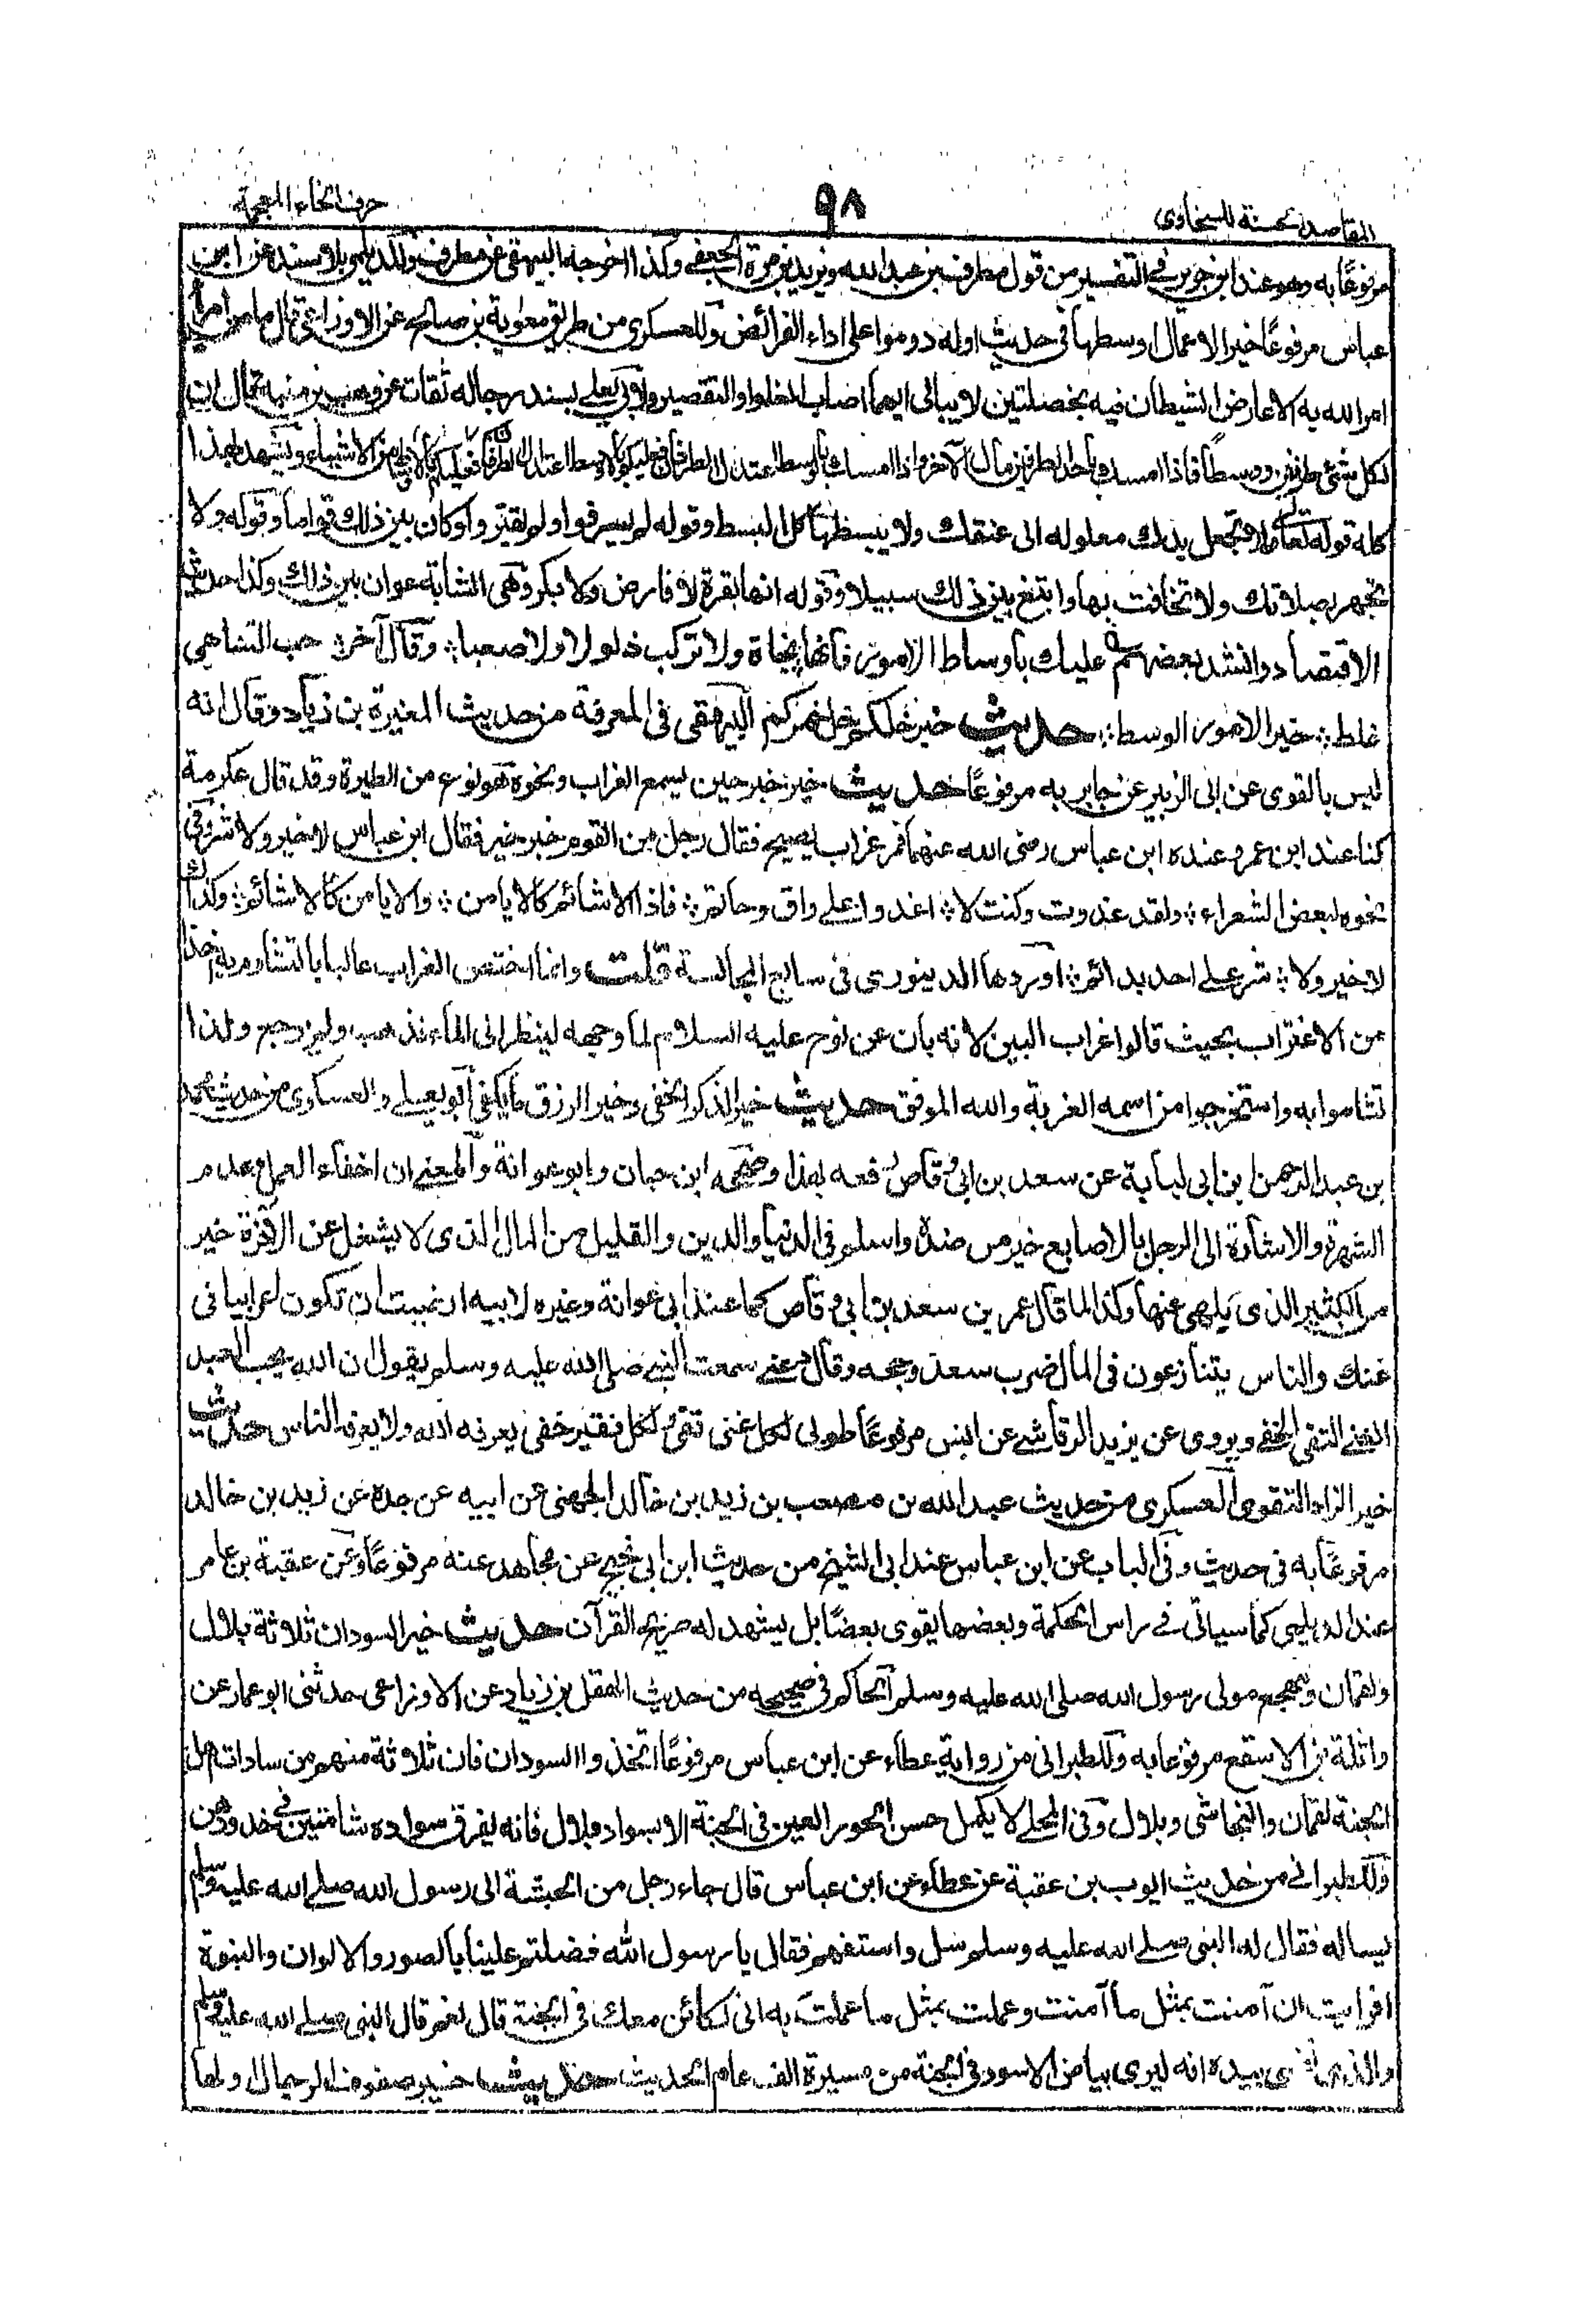 المقاصد الحسنة للسخاوى
٩٨
حرف الخاء المعجمة
مرفوعًا به وهو عند ابن جرير في التفسير من قول مطرف بن عبد الله ويزيد بن مرة الجعفى وكذا اخرجه البيهقى عن مطرف وللديلمى بلا سند عن ابن
عباس مرفوعًا خير الاعمال اوسطها فى حديث اوله دوموا على اداء الفرائض وللعسكرى من طريق معاوية بن صالح عن الاوزاعى قال ما من امر
امر الله به الا عارض الشيطان فيه بخصلتين لا يبالى ايهما اصاب الغلو او التقصير ولابى يعلى بسند رجاله ثقات عن وهب بن منبه قال ان
لكل شئ طرفين ووسطاً فاذا امسك باحد الطرفين مال الآخر واذا امسك بالوسط اعتدل الطرفان فعليكم بالاوسط من الاشياء ويشهد لهذا
كله قوله تعالى ولا تجعل يدك مغلوله الى عنقك ولا تبسطها كل البسط وقوله لم يسرفوا ولم يقتروا وكان بين ذلك قواما وقوله ولا
تجهر بصلاتك ولا تخافت بها وابتغ بين ذلك سبيلا وقوله انها بقرة لا فارض ولا بكر وهى الشابة عوان بين ذلك وكذا حديث
الاقتصاد وانشد بعضهم عليك بأوساط الامور فانها نجاة ولا تركب ذلولا ولا صعبا وقال آخر حب التناهى
غلط خير الامور الوسط حديث خير خلكم خل خمركم البيهقى فى المعرفة من حديث المغيرة بن زياد وقال انه
ليس بالقوى عن ابى الزبير عن جابر به مرفوعًا حديث خير خير حين يسمع الغراب ونحوه هو نوع من الطيرة وقد قال عكرمة
كنا عند ابن عمر وعنده ابن عباس رضى الله عنهما فمر غراب يصيح فقال رجل من القوم خير خير فقال ابن عباس لا خير ولا شر وفى
نحوه لبعض الشعراء ولقد غدوت وكنت لا اغدو على واق وحاتم فاذا الاشائم كالايامن والايامن كالاشائم وكذاك
لا خير ولا شر على احد بدائم اوردها الدينورى فى سابع المجالسة قلت وانما اختص الغراب غالبا بالتشاؤم به اخذا
من الاغتراب بحيث قالوا غراب البين لانه بان عن نوح عليه السلام لما وجهه لينظر الى الماء فذهب ولم يرجع ولذا
تشاموا به واستخرجوا من اسمه الغربة والله الموفق حديث خير الذكر الخفى وخير الرزق ما يكفى ابو يعلى والعسكرى من حديث محمد
بن عبد الرحمن ابن ابى لبابة عن سعد بن ابى وقاص رفعه بهذا وصححه ابن حبان وابو عوانة والمعنى ان اخفاء العمل وعدم
الشهرة والاشارة الى الرجل بالاصابع خير من ضده واسلم فى الدنيا والدين والقليل من المال الذى لا يشغل عن الاخرة خير
من الكثير الذى يلهى عنها وكذا لما قال عمر بن سعد بن ابى وقاص كما عند ابى عوانة وغيره لابيه ارضيت ان تكون اعرابيا فى
غنمك والناس يتنازعون فى المال ضرب سعد وجهه وقال دعنى سمعت النبى صلى الله عليه وسلم يقول ان الله يحب العبد
الغنى التقى الخفى ويروى عن يزيد الرقاشى عن انس مرفوعًا طوبى لكل غنى تقى لكل فقير خفى يعرفه الله ولا يعرفه الناس حديث
خير الزاد التقوى العسكرى من حديث عبد الله بن مصعب بن زيد بن خالد الجهنى عن ابيه عن جده عن زيد بن خالد
مرفوعًا به فى حديث وفى الباب عن ابن عباس عند ابى الشيخ من حديث ابن ابى نجيح عن مجاهد عنه مرفوعًا وعن عقبة بن عامر
عند الديلمى كما سياتى فى راس الحكمة وبعضها يقوى بعضًا بل يشهد له صريح القرآن حديث خير السودان ثلاثة بلال
ولقمان ومهجع مولى رسول الله صلى الله عليه وسلم الحاكم فى صحيحه من حديث الهقل بن زياد عن الاوزاعى حدثنى ابو عمار عن
واثلة بن الاسقع مرفوعا به وللطبرانى من رواية عطاء عن ابن عباس مرفوعًا اتخذوا السودان فان ثلاثة منهم من سادات اهل
الجنة لقمان والنجاشى وبلال وفى المحلى لا يكمل حسن الحور العين فى الجنة الا بسواد بلال فانه يفرق سواده شامتين فى خدودهن
وللطبرانى من حديث ايوب بن عقبة عن عطاء عن ابن عباس قال جاء رجل من الحبشة الى رسول الله صلى الله عليه وسلم
يساله فقال له النبى صلى الله عليه وسلم سل واستفهم فقال يا رسول الله فضلتم علينا بالصور والالوان والنبوة
افرايت ان آمنت بمثل ما آمنت وعملت بمثل ما عملت به انى لكائن معك فى الجنة قال نعم قال النبى صلى الله عليه وسلم
والذى نفسى بيده انه ليرى بياض الاسود فى الجنة من مسيرة الف عام الحديث حديث خير صفوف الرجال اولها